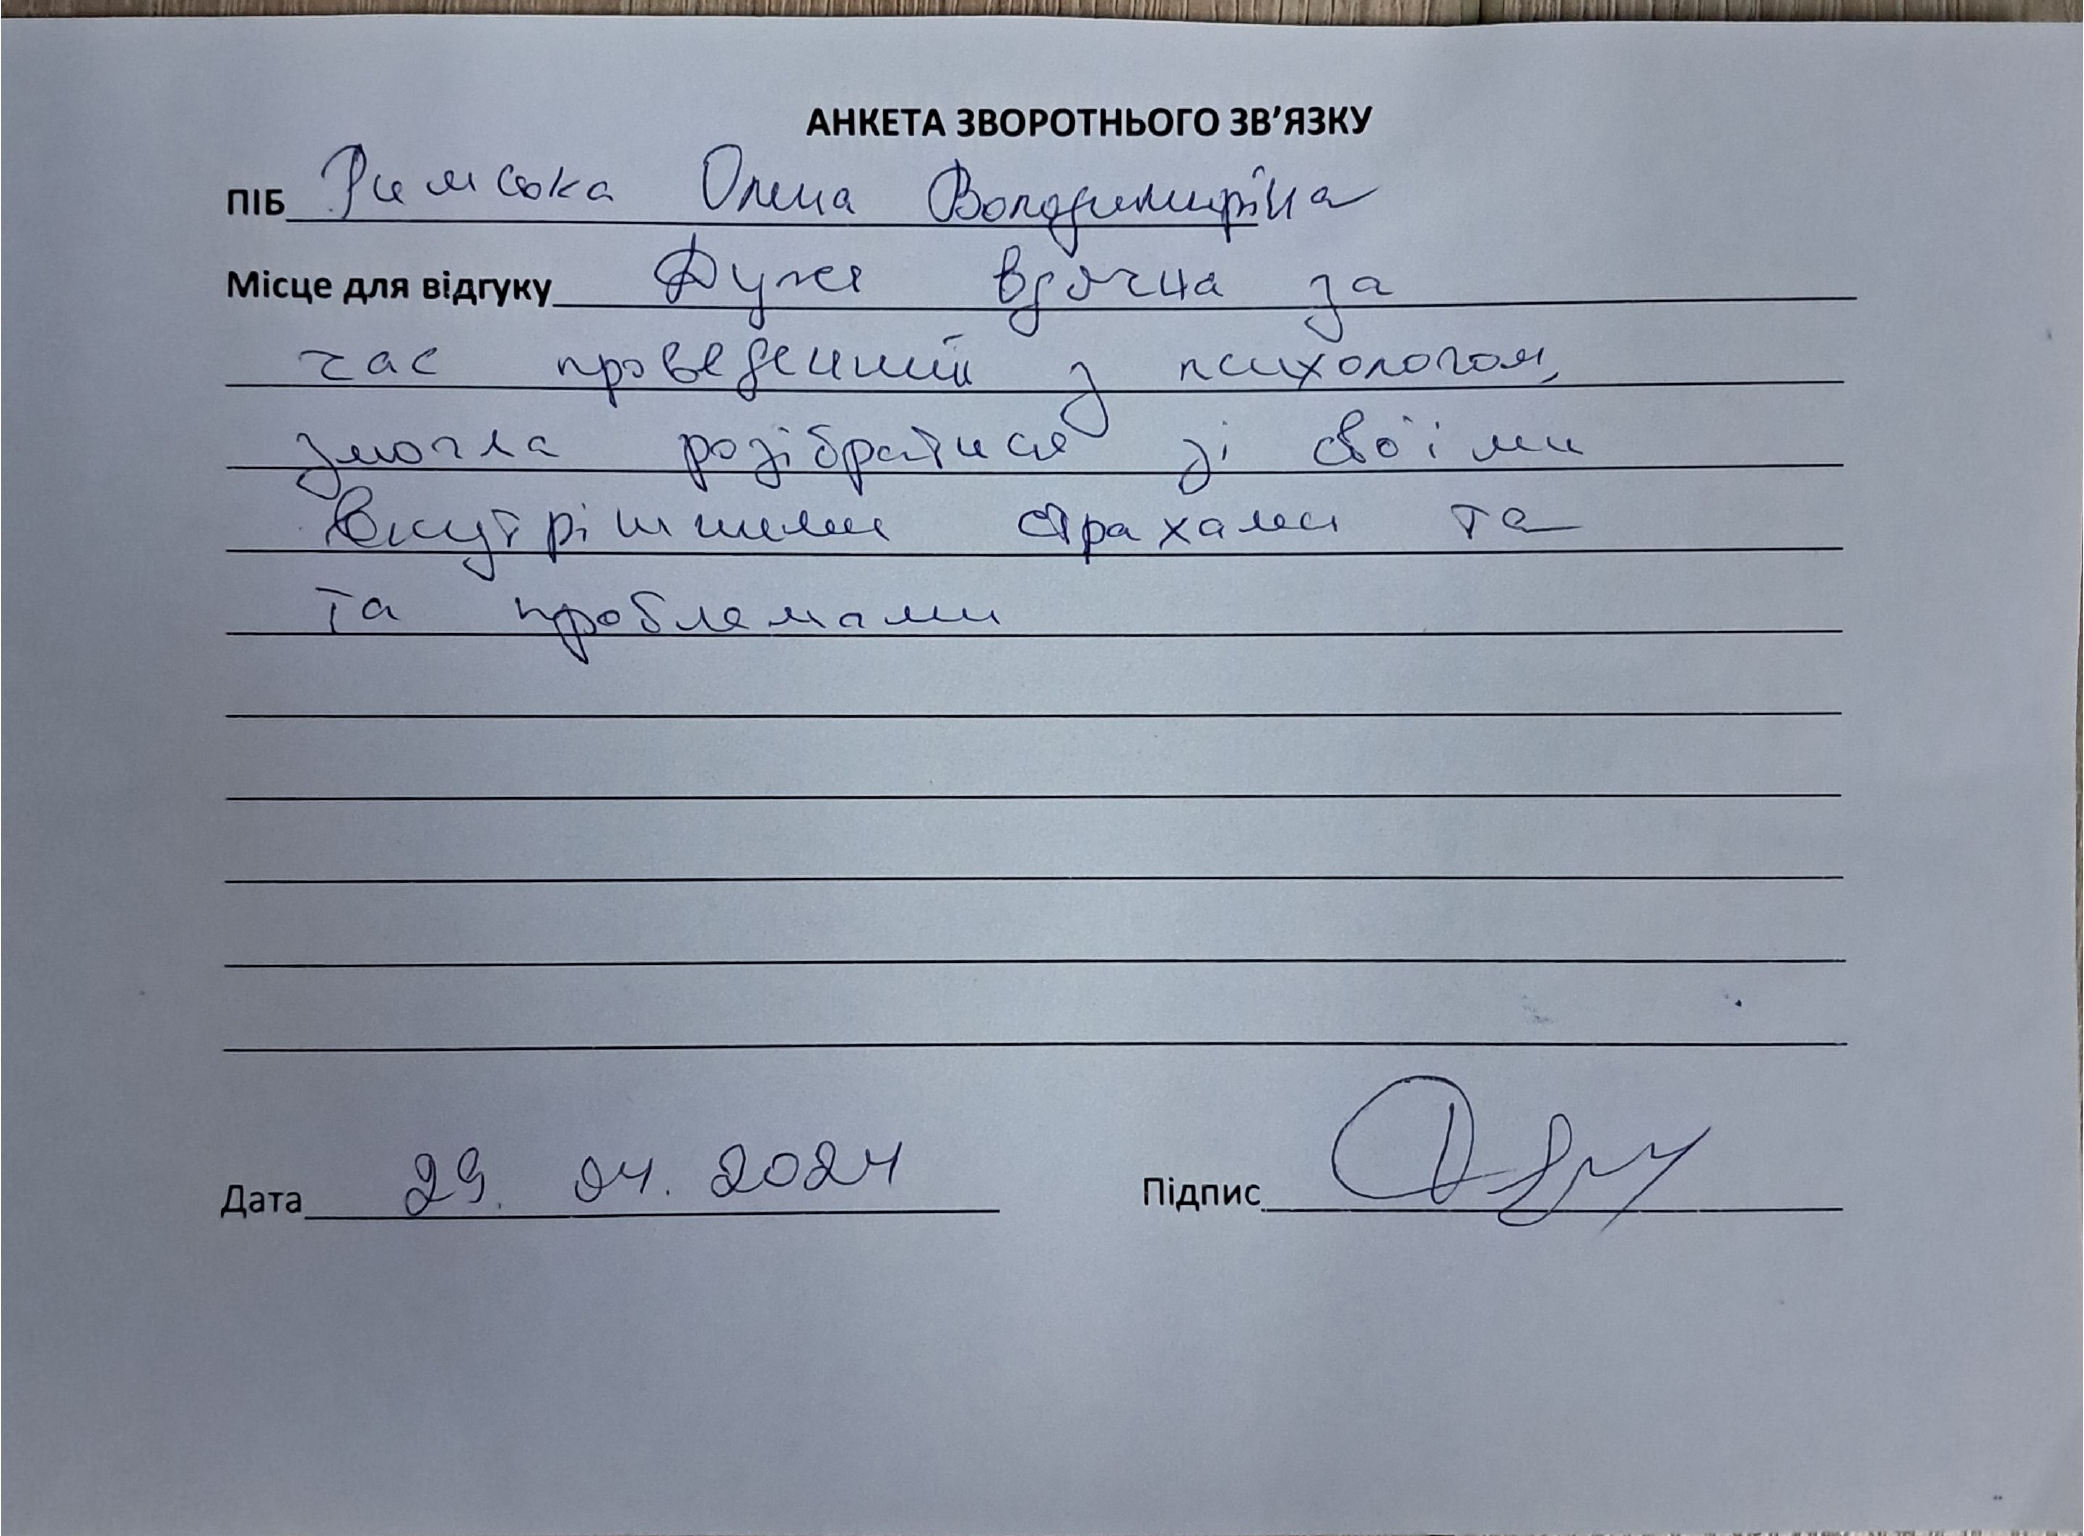 АНКЕТА ЗВОРОТНЬОГО ЗВ'ЯЗКУ
ПІБ Римська Олена Володимирівна
Місце для відгуку Дуже вдячна за
час проведений з психологом,
змогла розібратися зі своїми
внутрішніми страхами та
та проблемами
Дата 29.04.2024 Підпис